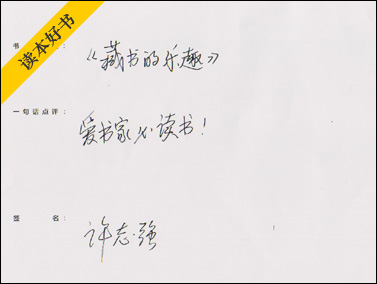 读本好书
书 :
《藏书的乐趣》
一句话点评:
爱书家必读书!
签 名:
许志强